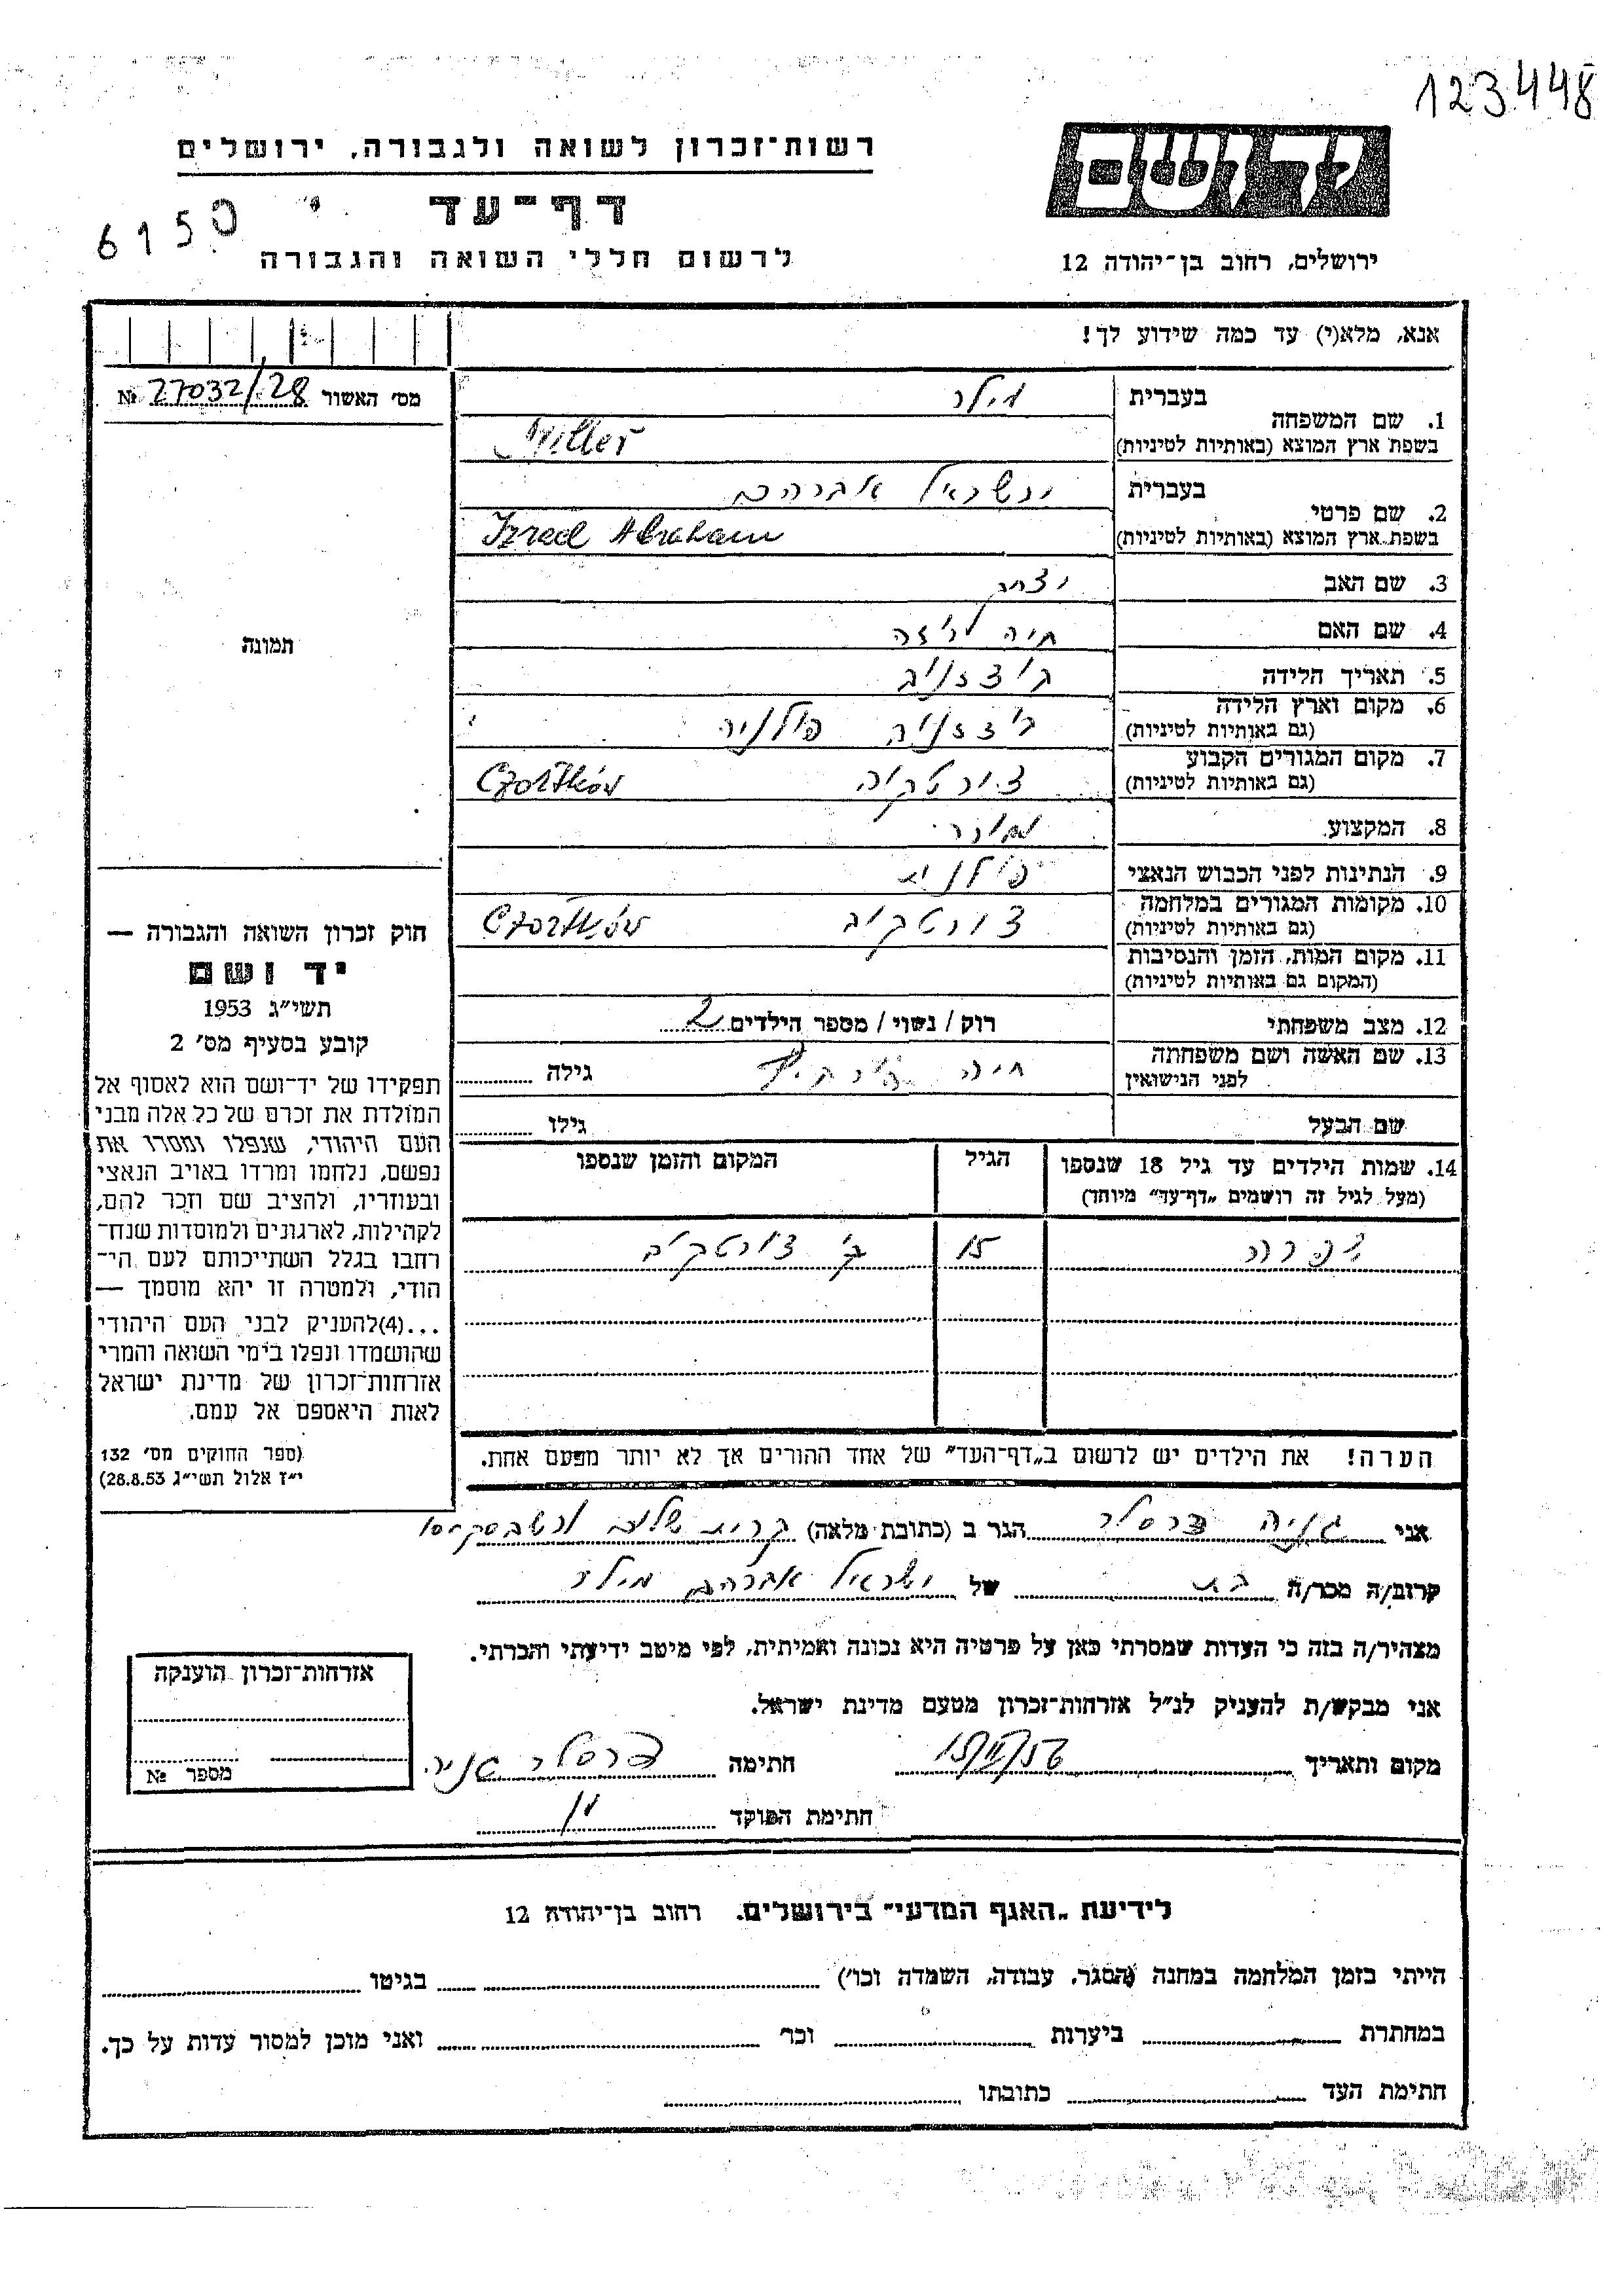 123448
יד ושם
רשות־זכרון לשואה ולגבורה, ירושלים
דף־עד
6150
לרשום חללי השואה והגבורה
ירושלים, רחוב בן־יהודה 12
אנא, מלא(י) עד כמה שידוע לך!
מס׳ האשור 27032/28 №
1. שם המשפחה בעברית מילר
בשפת ארץ המוצא (באותיות לטיניות) Miller
2. שם פרטי בעברית ישראל אברהם
בשפת ארץ המוצא (באותיות לטיניות) Izrael Abraham
3. שם האב יצחק
4. שם האם חיה
5. תאריך הלידה
6. מקום וארץ הלידה פולניה
(גם באותיות לטיניות)
7. מקום המגורים הקבוע צורטקוב Czortków
(גם באותיות לטיניות)
8. המקצוע
9. הנתינות לפני הכבוש הנאצי פולנית
10. מקומות המגורים במלחמה צורטקוב Czortków
(גם באותיות לטיניות)
11. מקום המות, הזמן והנסיבות
(המקום גם באותיות לטיניות)
12. מצב משפחתי רוק / נשוי / מספר הילדים 2
13. שם האשה ושם משפחתה חיה גילה
לפני הנישואין
שם הבעל גילו
14. שמות הילדים עד גיל 18 שנספו הגיל המקום והזמן שנספו
(מעל לגיל זה רושמים „דף־עד” מיוחד)
צפרה 15 בצורטקוב
הערה! את הילדים יש לרשום ב„דף־העד” של אחד ההורים אך לא יותר מפעם אחת.
תמונה
חוק זכרון השואה והגבורה —
יד ושם
תשי״ג 1953
קובע בסעיף מס׳ 2
תפקידו של יד־ושם הוא לאסוף אל
המולדת את זכרם של כל אלה מבני
העם היהודי, שנפלו ומסרו את
נפשם, נלחמו ומרדו באויב הנאצי
ובעוזריו, ולהציב שם וזכר להם,
לקהילות, לארגונים ולמוסדות שנח־
רחבו בגלל השתייכותם לעם הי־
הודי, ולמטרה זו יהא מוסמך —
...(4)להעניק לבני העם היהודי
שהושמדו ונפלו בימי השואה והמרי
אזרחות־זכרון של מדינת ישראל
לאות היאספם אל עמם.
(ספר החוקים מס׳ 132
י״ז אלול תשי״ג 28.8.53)
אני גניה דרסלר הגר ב (כתובת מלאה) קרית שלום
קרוב/ה מכר/ה בת של ישראל אברהם מילר
מצהיר/ה בזה כי העדות שמסרתי כאן על פרטיה היא נכונה ואמיתית, לפי מיטב ידיעתי והכרתי.
אני מבקש/ת להעניק לנ״ל אזרחות־זכרון מטעם מדינת ישראל.
מקום ותאריך חתימה דרסלר גניה
חתימת הפוקד
אזרחות־זכרון הוענקה
מספר №
לידיעת „האגף המדעי” בירושלים, רחוב בן־יהודה 12
הייתי בזמן המלחמה במחנה (הסגר, עבודה, השמדה וכו׳) בגיטו
במחתרת ביערות וכו׳ ואני מוכן למסור עדות על כך.
חתימת העד כתובתו